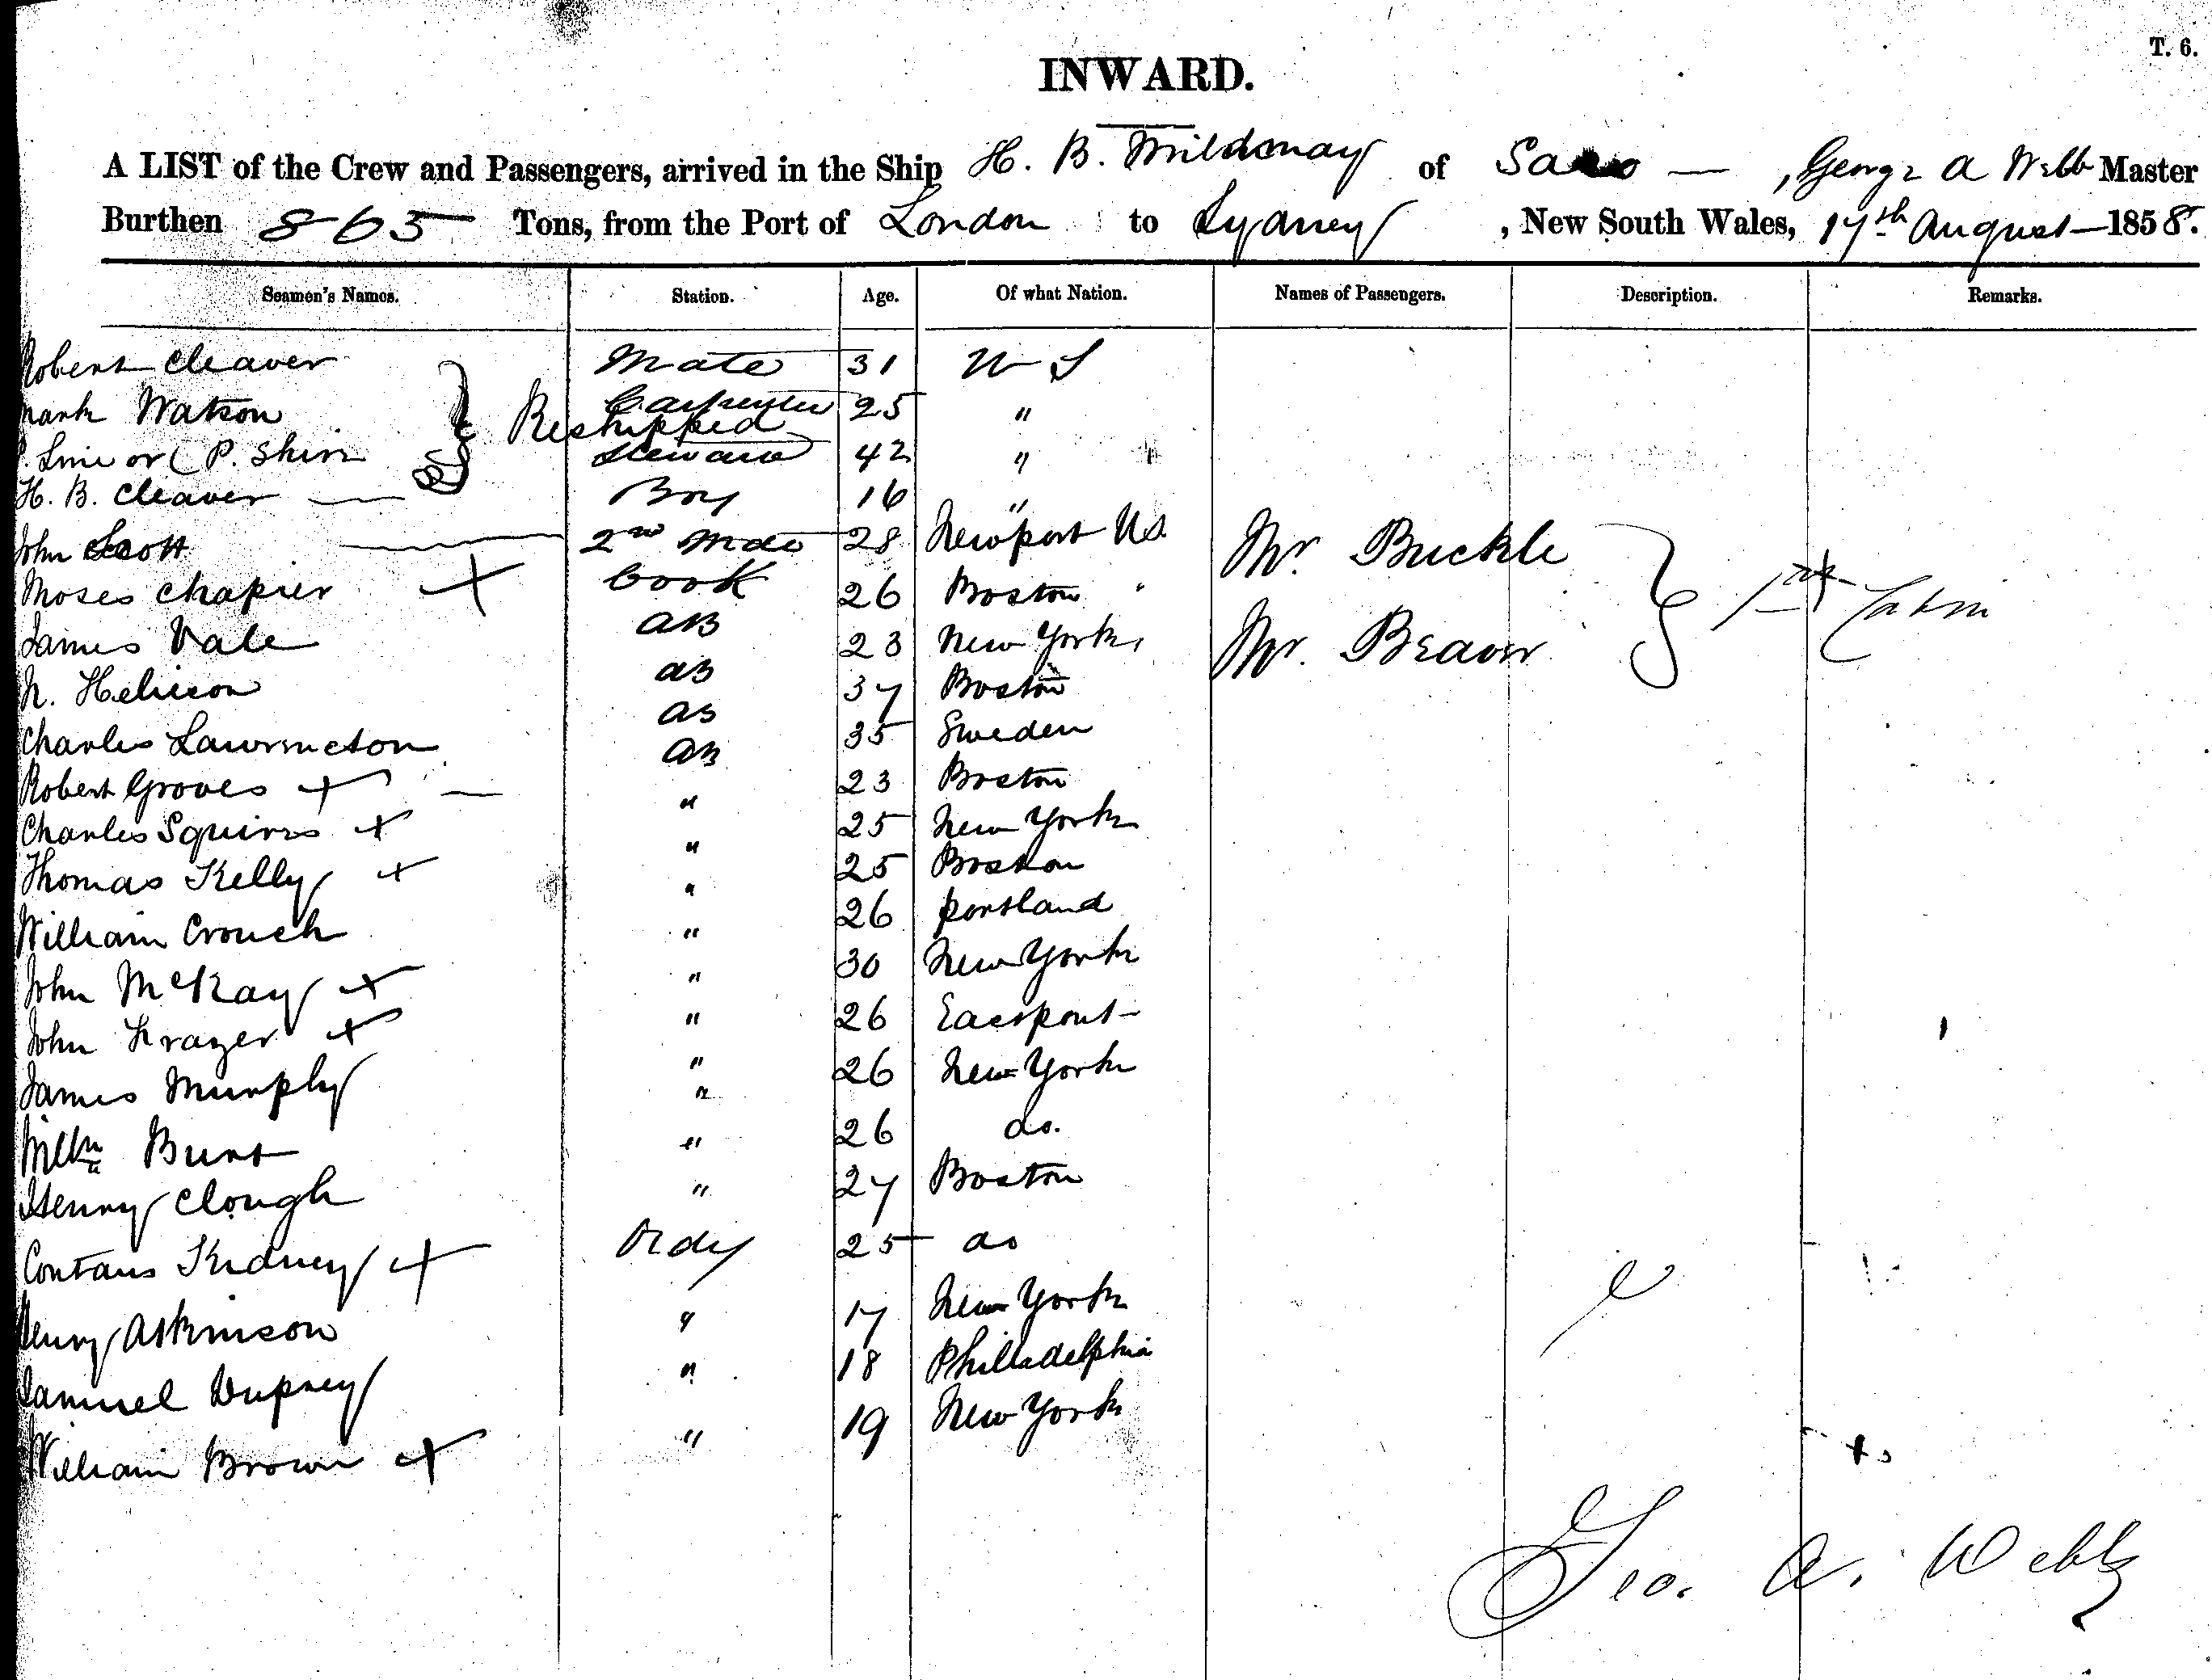 T. 6.
INWARD.
A LIST of the Crew and Passengers, arrived in the Ship H. B. Mildmay of Saco — , George A Webb Master
Burthen 865 Tons, from the Port of London to Sydney , New South Wales, 17th August — 1858.
Seamen's Names. Station. Age. Of what Nation. Names of Passengers. Description. Remarks.
Robert Cleaver Mate 31 U S
Mark Watson Carpenter 25 "
Reshipped
P. Shirr Steward 42 "
H. B. Cleaver — Boy 16 "
John Scott — 2nd Mate 28 Newport US. Mr. Buckle
Moses Chapier + Cook 26 Boston " 1st Cabin
James Vale AB 23 New York Mr. Beaver
N. Helicon AB 37 Boston
Charles Lawrinceton AB 35 Sweden
Robert Groves + — AB 23 Boston
Charles Squires + " 25 New York
Thomas Kelly + " 25 Boston
William Crouch " 26 Portland
John McKay + " 30 New York
John Frazer + " 26 Eastport
James Murphy " 26 New York
Willm Burt " 26 do.
Henry Clough " 27 Boston
Contans Kidney + Ordy 25 do
Henry Atkinson " 17 New York
Samuel Dupney " 18 Philladelphia
William Brown + " 19 New York
Geo. A. Webb